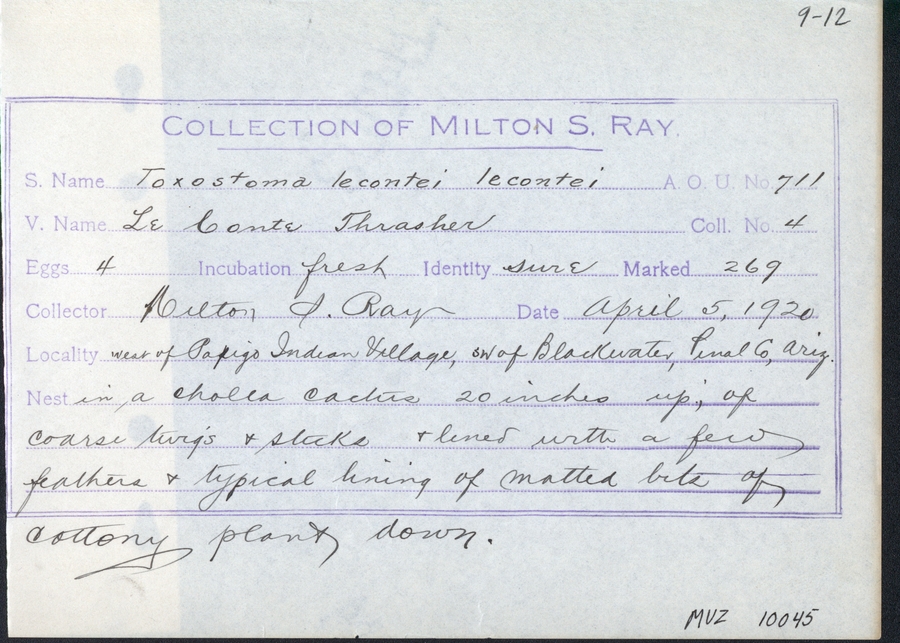 9-12
COLLECTION OF MILTON S. RAY.
S. Name Toxostoma lecontei lecontei A. O. U. No. 711
V. Name Le Conte Thrasher Coll. No. 4
Eggs 4 Incubation fresh Identity sure Marked 269
Collector Milton S. Ray Date April 5, 1920
Locality west of Papigo Indian Village, sw of Blackwater, Pinal Co, Ariz.
Nest in a cholla cactus 20 inches up; of
coarse twigs & sticks & lined with a few
feathers & typical lining of matted bits of
cottony plant down.
MVZ 10045